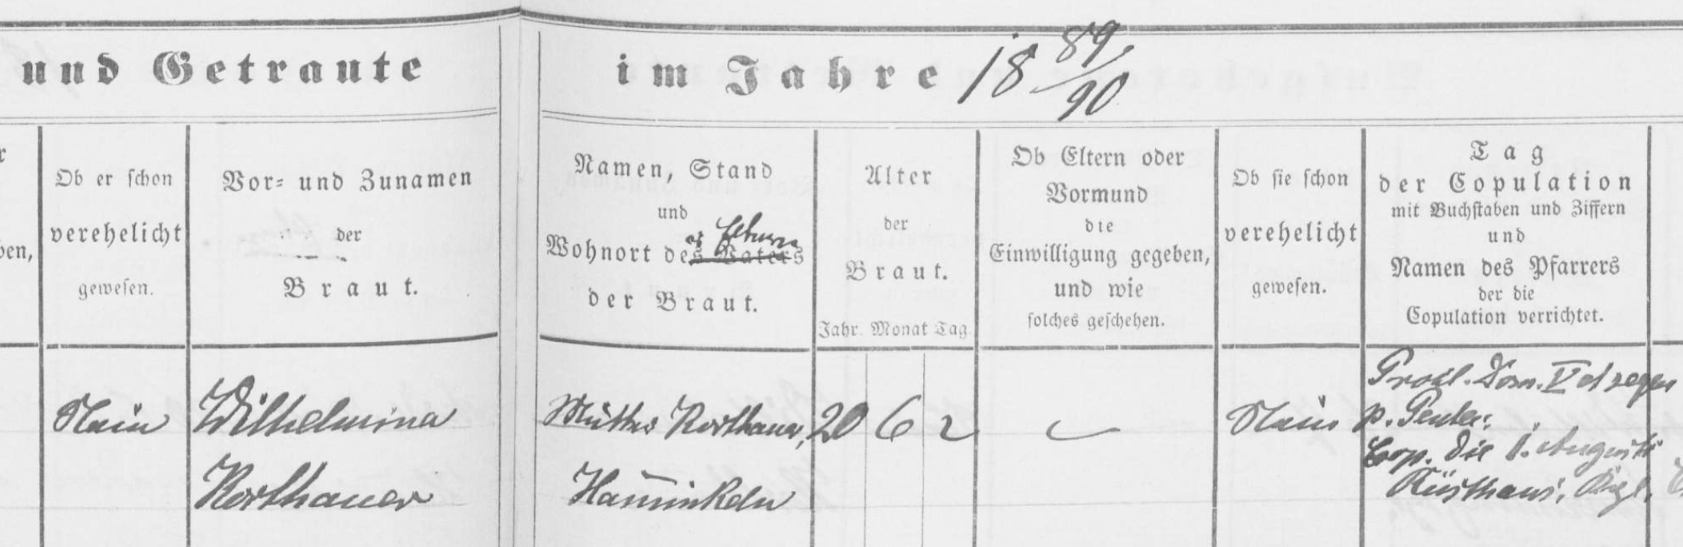 und Getraute im Jahre 1889/90
Ob er schon
verehelicht
gewesen.
Vor- und Zunamen
der
Braut.
Namen, Stand
und
Wohnort des Vaters
der Braut.
Alter
der
Braut.
Jahr. Monat Tag.
Ob Eltern oder
Vormund
die
Einwilligung gegeben,
und wie
solches geschehen.
Ob sie schon
verehelicht
gewesen.
Tag
der Copulation
mit Buchstaben und Ziffern
und
Namen des Pfarrers
der die
Copulation verrichtet.
Nein
Wilhelmina
Korthauer
Mutter Korthauer,
Hamminkeln
20 6 2
Nein
Prokl. Dom. V et
p.
Cop. die 1. Augusti